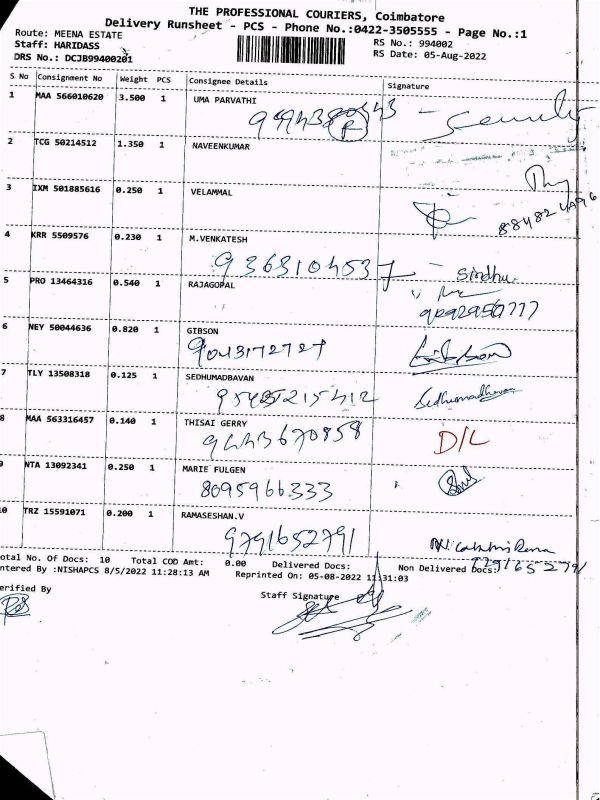 THE PROFESSIONAL COURIERS, Coimbatore
Delivery Runsheet - PCS - Phone No.:0422-3505555 - Page No.:1
Route: MEENA ESTATE
RS No.: 994002
Staff: HARIDASS
RS Date: 05-Aug-2022
DRS No.: DCJB99400201
S No Consignment No Weight PCS Consignee Details Signature
1 MAA 566010620 3.500 1 UMA PARVATHI
2 TCG 50214512 1.350 1 NAVEENKUMAR
3 IXM 501885616 0.250 1 VELAMMAL
4 KRR 5509576 0.230 1 M.VENKATESH
9368104537 - Sindhu
5 PRO 13464316 0.540 1 RAJAGOPAL
6 NEY 50044636 0.820 1 GIBSON
9043172727
7 TLY 13508318 0.125 1 SEDHUMADBAVAN
Sedhumadhavan
8 MAA 563316457 0.140 1 THISAI GERRY
9443670858 D/L
9 NTA 13092341 0.250 1 MARIE FULGEN
8095966333
10 TRZ 15591071 0.200 1 RAMASESHAN.V
9791652791
Total No. Of Docs: 10 Total COD Amt: 0.00 Delivered Docs: Non Delivered Docs:
9791652791
Entered By :NISHAPCS 8/5/2022 11:28:13 AM Reprinted On: 05-08-2022 11:31:03
Verified By Staff Signature